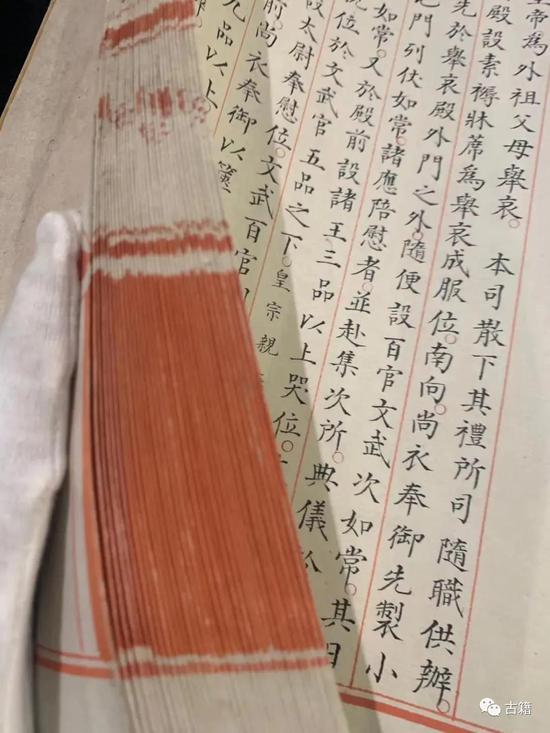 皇帝為外祖父母舉哀。 本司散下其禮所司隨職供辦。
殿設素褥牀席為舉哀成服位。南向。尚衣奉御先製小
先於舉哀殿外門之外。隨便設百官文武次如常。其日
屯門列伏如常。諸應陪慰者。並赴集次所。典儀於
如常。又於殿前設諸王三品以上哭位。
位於文武官五品之下。皇宗親
設太尉奉慰位。文武百官
前。尚衣奉御以篋
九品以上
古籍